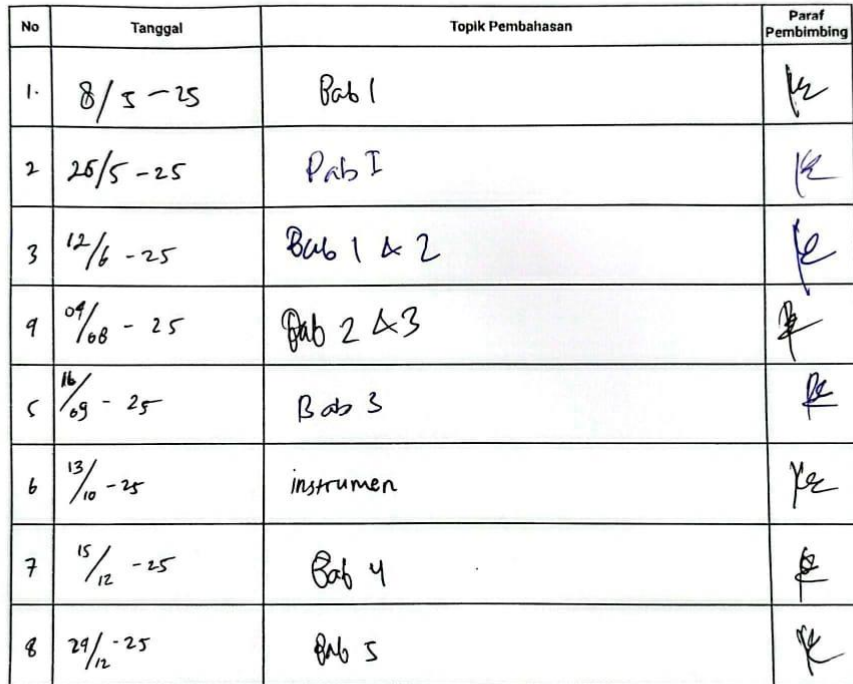 No Tanggal Topik Pembahasan Paraf Pembimbing
1. 8/5 - 25 Bab 1
2 26/5 - 25 Bab I
3 12/6 - 25 Bab 1 & 2
4 04/08 - 25 Bab 2 & 3
5 16/09 - 25 Bab 3
6 13/10 - 25 instrumen
7 15/12 - 25 Bab 4
8 29/12 - 25 Bab 5